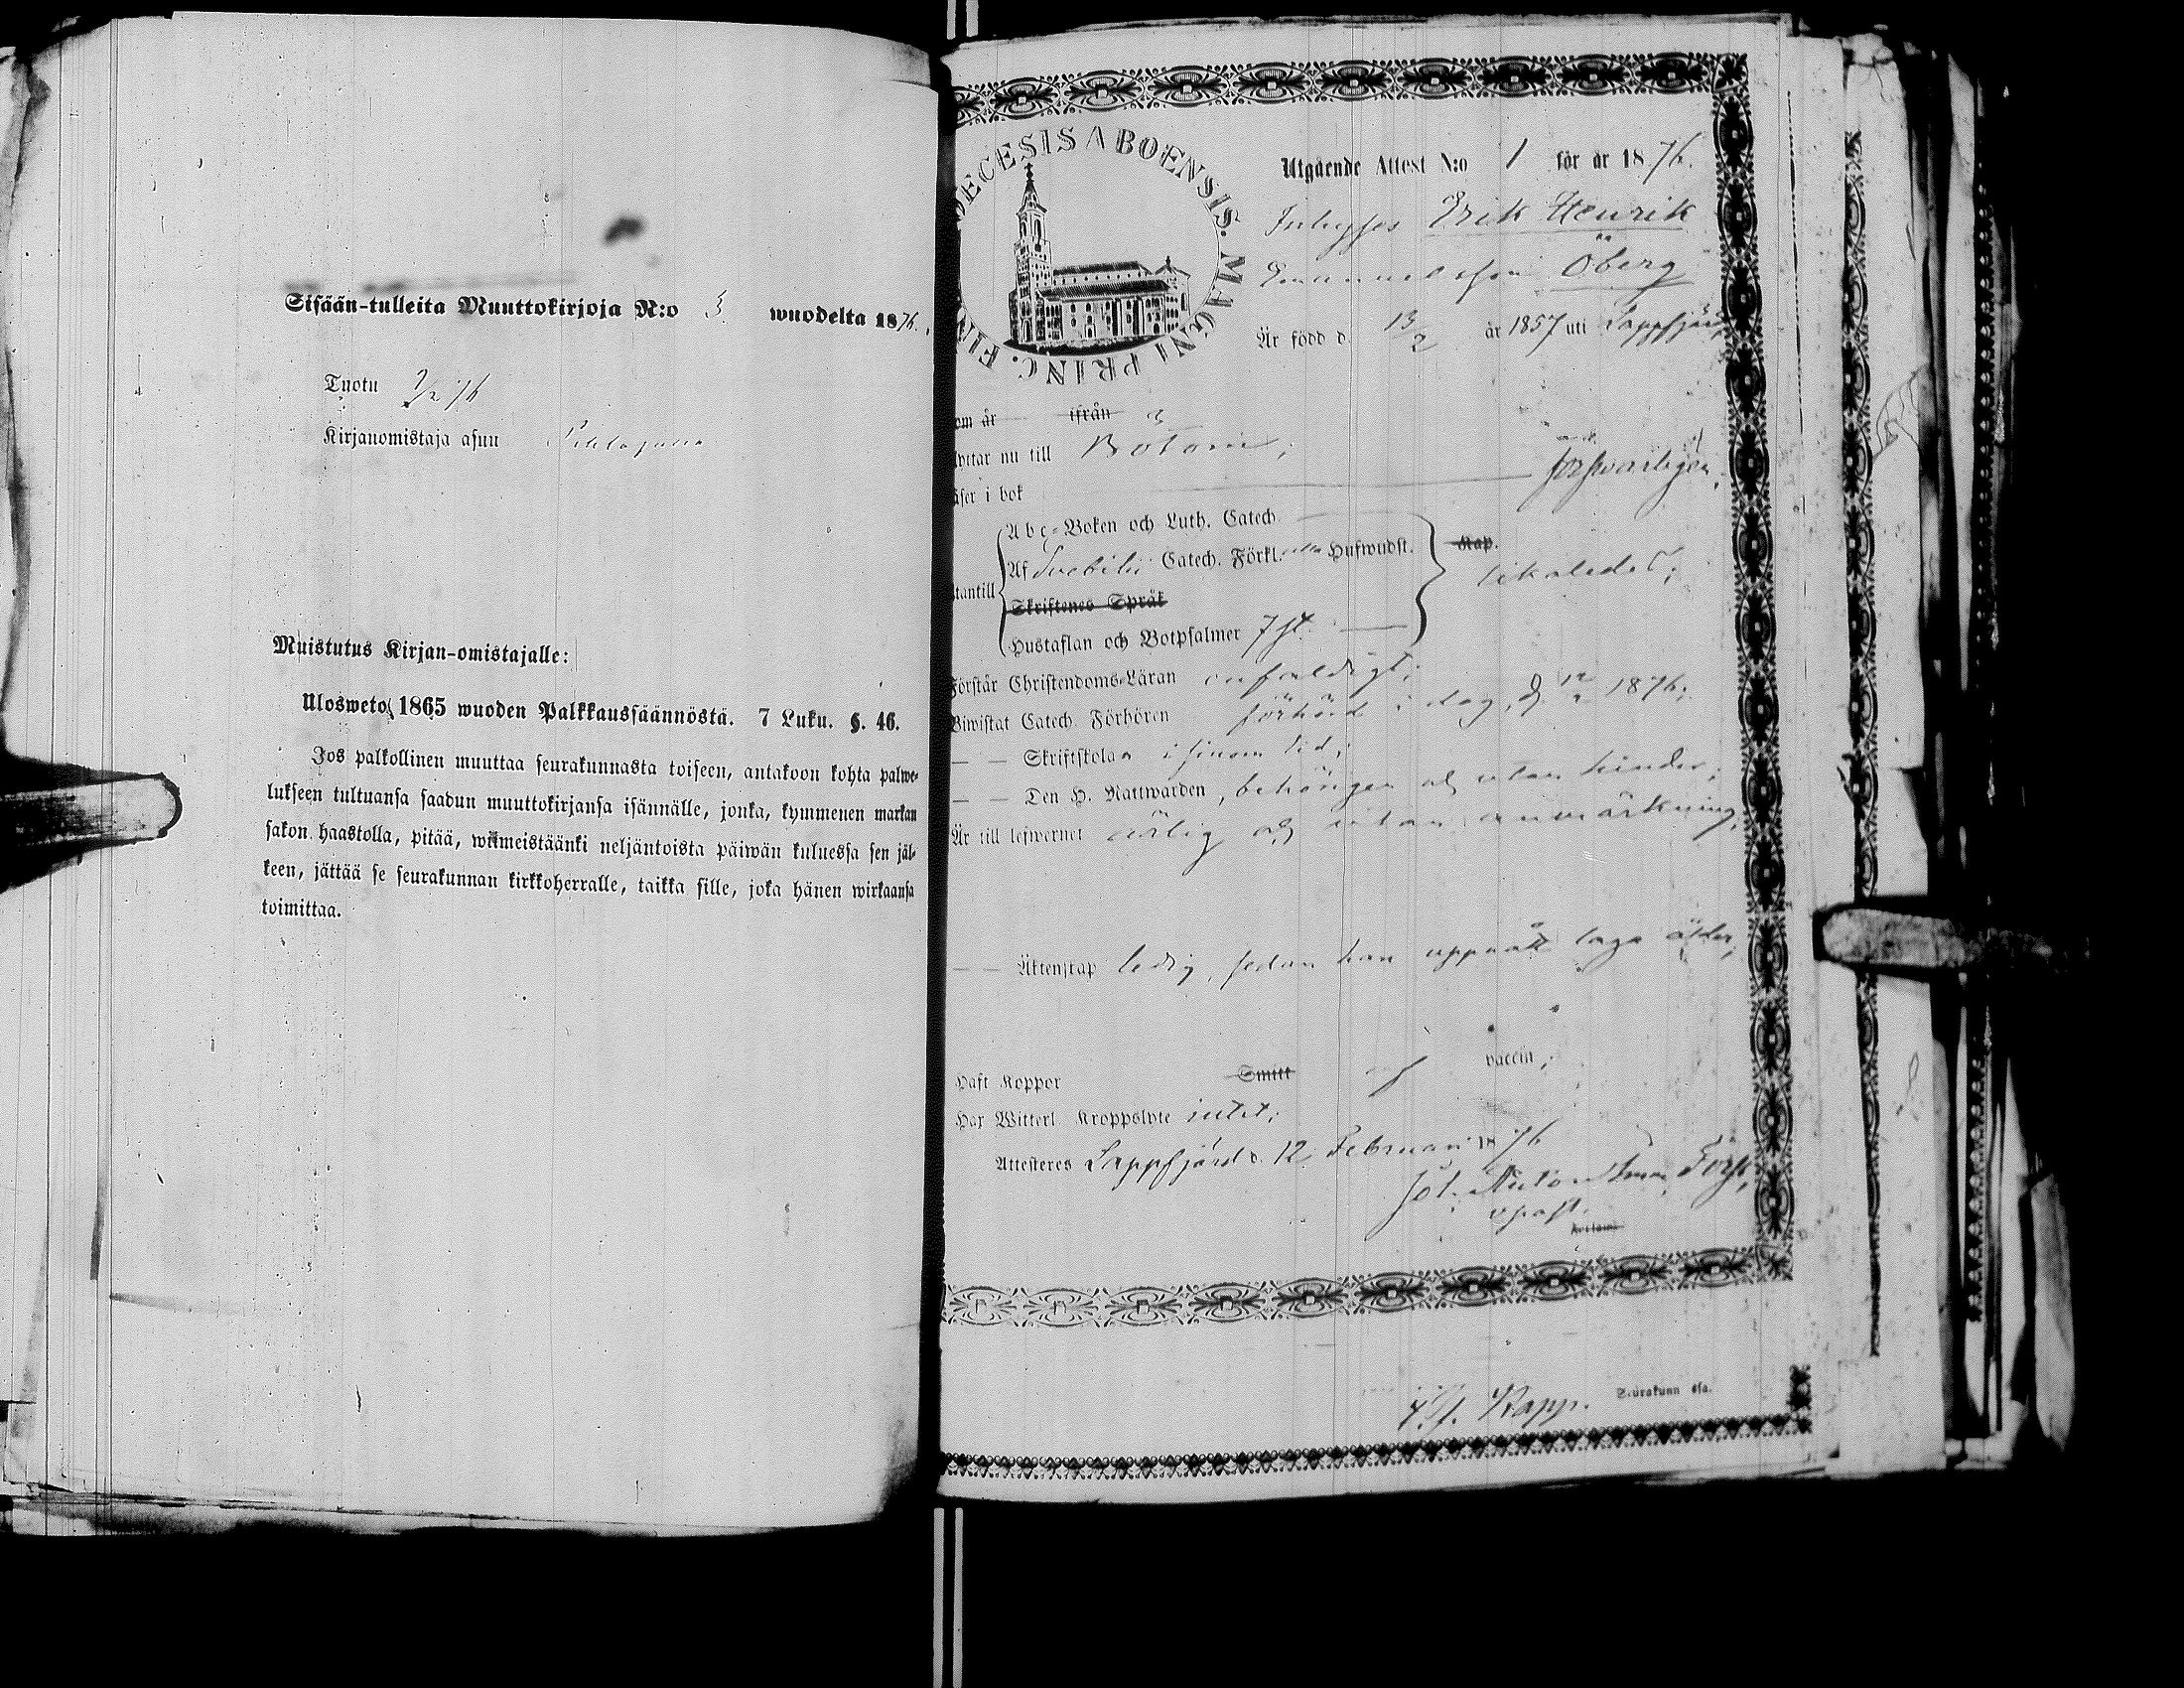 Sisään-tulleita Muuttokirjoja N:o 3. wuodelta 1876.
Tuotu 76
Kirjanomistaja asuu
Muistutus Kirjan-omistajalle:
Ulosweto 1865 wuoden Palkkaussäännöstä. 7 Luku. §. 46.
Jos palkollinen muuttaa seurakunnasta toiseen, antakoon kohta palwe-
lukseen tultuansa saadun muuttokirjansa isännälle, jonka, kymmenen markan
sakon haastolla, pitää, wiimeistäänki neljäntoista päiwän kuluessa sen jäl-
keen, jättää se seurakunnan kirkkoherralle, taikka sille, joka hänen wirkaansa
toimittaa.
DIOECESIS ABOENSIS. MAGNI PRINC. FIN
Utgående Attest N:o 1 för år 1876.
Inhyses Erik Henrik
Emanuelsson Öberg
Är född d. 13/2 år 1857 uti Lappfjärd
om år ifrån
lyttar nu till Bötom;
äser i bok försvarligen.
Abc-Boken och Luth. Catech.
Af Svebilii Catech. Förkl. Hufwudst. Kap.
likaledes;
tantill
Skriftenes Språk
Hustaflan och Botpsalmer 7 st.
Förstår Christendoms-Läran enfaldigt;
Biwistat Catech. Förhören förhörd i dag, d. 12/2 1876;
— — Skriftskolan i sinom tid;
— — Den H. Nattwarden, behörigen och utan hinder;
Är till lefwernet ärlig och utan anmärkning,
— — Äktenskap ledig, sedan han uppnått laga ålder,
Haft Koppor Smitt vaccin;
Har Witterl Kroppslyte intet;
Attesteres Lappfjärd d. 12 Februari 1876
Joh. Anton
v. past.
Kapp. Seurakunn ssa.